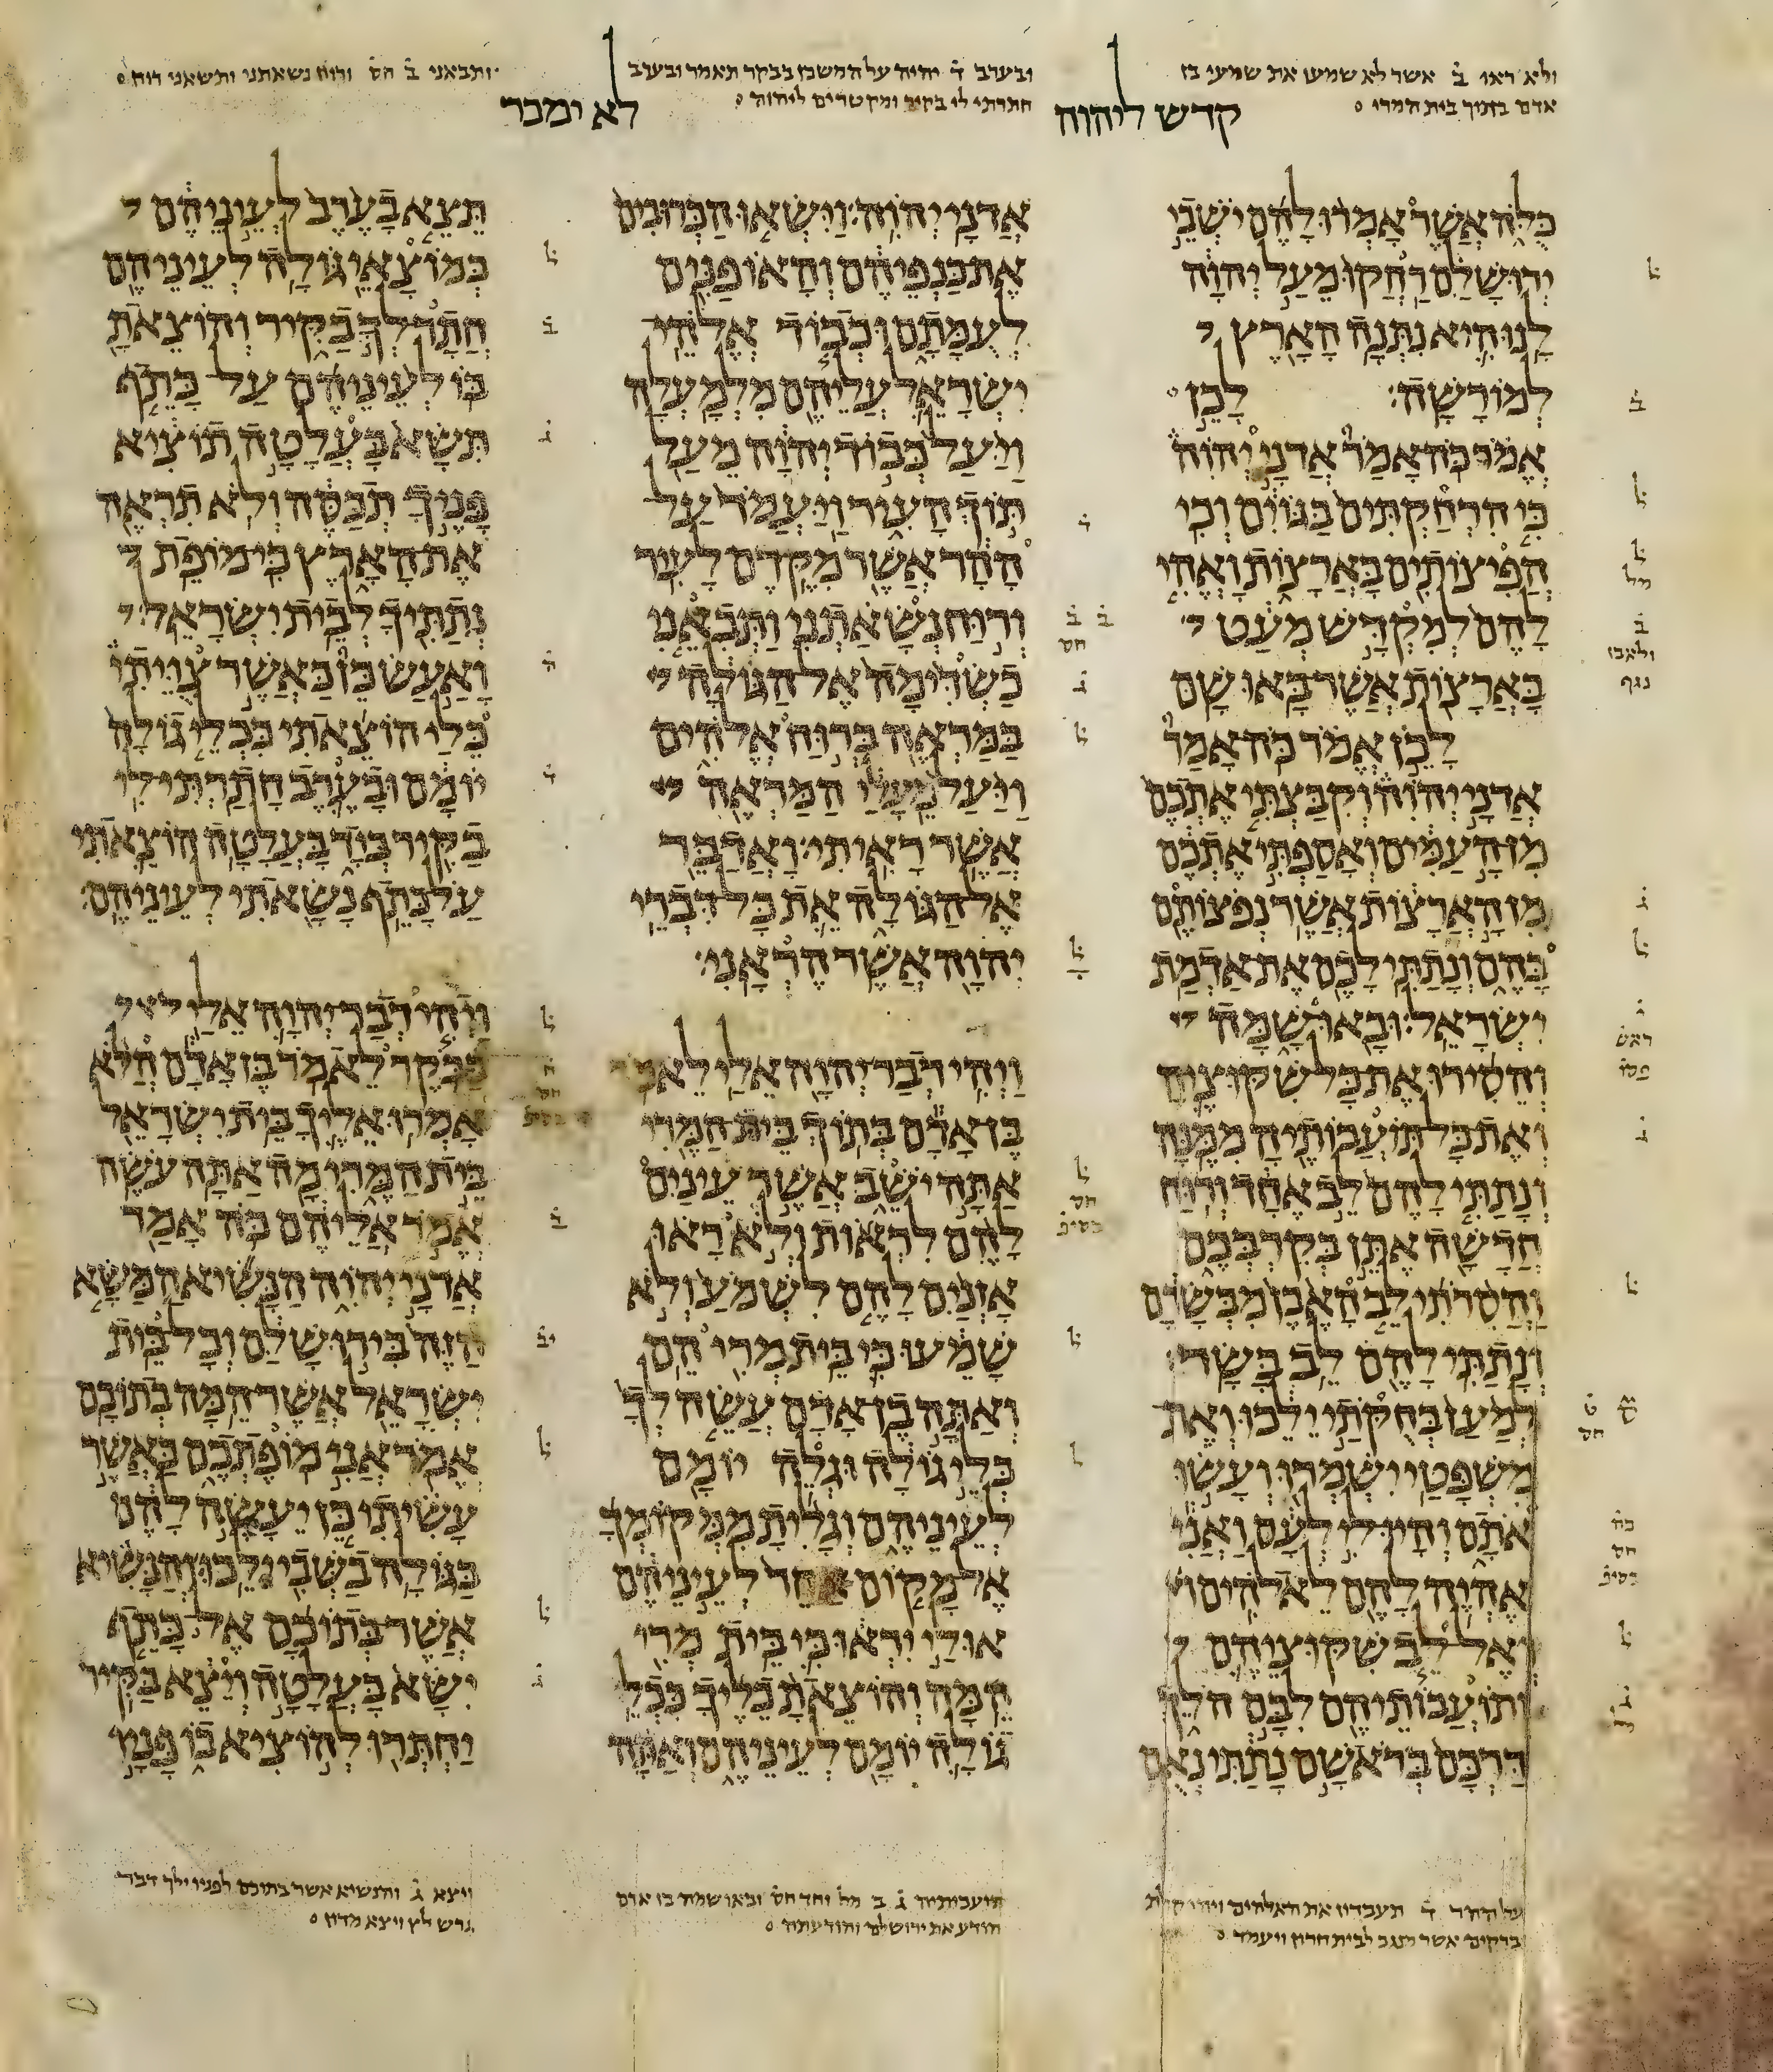 ולא ראו ב אשר לא שמעו את שמעי בן
אדם בתוך בית המרי
ובערב ד יהיה על המשכן בבקר תאמר ובערב
חתרתי לי בקיר ומקטרים ליהוה
ותבאני ב חס ורוח נשאתני ותשאני רוח
קדש ליהוה
לא ימכר
כלה אשר אמרו להם ישבי
ירושלם רחקו מעל יהוה
לנו היא נתנה הארץ
למורשה׃ לכן
אמר כה אמר אדני יהוה
כי הרחקתים בגוים וכי
הפיצותים בארצות ואהי
להם למקדש מעט
בארצות אשר באו שם׃
לכן אמר כה אמר
אדני יהוה וקבצתי אתכם
מן העמים ואספתי אתכם
מן הארצות אשר נפצותם
בהם ונתתי לכם את אדמת
ישראל׃ ובאו שמה
והסירו את כל שקוציה
ואת כל תועבותיה ממנה׃
ונתתי להם לב אחד ורוח
חדשה אתן בקרבכם
והסרתי לב האבן מבשרם
ונתתי להם לב בשר׃
למען בחקתי ילכו ואת
משפטי ישמרו ועשו
אתם והיו לי לעם ואני
אהיה להם לאלהים׃
ואל לב שקוציהם
ותועבותיהם לבם הלך
דרכם בראשם נתתי נאם
אדני יהוה׃ וישאו הכרובים
את כנפיהם והאופנים
לעמתם וכבוד אלהי
ישראל עליהם מלמעלה׃
ויעל כבוד יהוה מעל
תוך העיר ויעמד על
ההר אשר מקדם לעיר׃
ורוח נשאתני ותבאני
כשדימה אל הגולה
במראה ברוח אלהים
ויעל מעלי המראה
אשר ראיתי׃ ואדבר
אל הגולה את כל דברי
יהוה אשר הראני׃
ויהי דבר יהוה אלי לאמר׃
בן אדם בתוך בית המרי
אתה ישב אשר עינים
להם לראות ולא ראו
אזנים להם לשמע ולא
שמעו כי בית מרי הם׃
ואתה בן אדם עשה לך
כלי גולה וגלה יומם
לעיניהם וגלית ממקומך
אל מקום אחר לעיניהם
אולי יראו כי בית מרי
המה׃ והוצאת כליך ככלי
גולה יומם לעיניהם ואתה
תצא בערב לעיניהם
כמוצאי גולה׃ לעיניהם
חתר לך בקיר והוצאת
בו׃ לעיניהם על כתף
תשא בעלטה תוציא
פניך תכסה ולא תראה
את הארץ כי מופת
נתתיך לבית ישראל׃
ואעש כן כאשר צויתי
כלי הוצאתי ככלי גולה
יומם ובערב חתרתי לי
בקיר ביד בעלטה הוצאתי
על כתף נשאתי לעיניהם׃
ויהי דבר יהוה אלי
בבקר לאמר׃ בן אדם הלא
אמרו אליך בית ישראל
בית המרי מה אתה עשה׃
אמר אליהם כה אמר
אדני יהוה הנשיא המשא
הזה בירושלם וכל בית
ישראל אשר המה בתוכם׃
אמר אני מופתכם כאשר
עשיתי כן יעשה להם
בגולה בשבי ילכו׃ והנשיא
אשר בתוכם אל כתף
ישא בעלטה ויצא בקיר
יחתרו להוציא בו פניו
על ההר ד תעבדון את האלהים
אשר מנגב לבית חרון ויעמד
תועבותיה ג ב מל וחד חס ובאו שמה בן אדם
הודע את ירושלם והודעתה
ויצא ג והנשיא אשר בתוכם לפניו ילך דבר
גרש לץ ויצא מדון